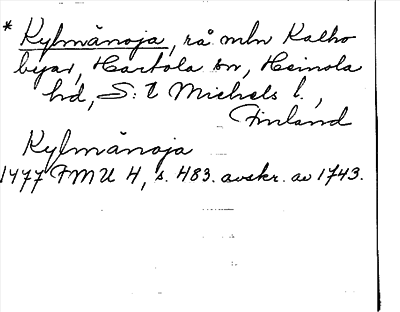 * Kylmänoja, rå mln Kalho
byar, Hartola sn, Heinola
hd, S:t Michels l.,
Finland
Kylmänoja
1477 FMU 4, s. 483. avskr. av 1743.